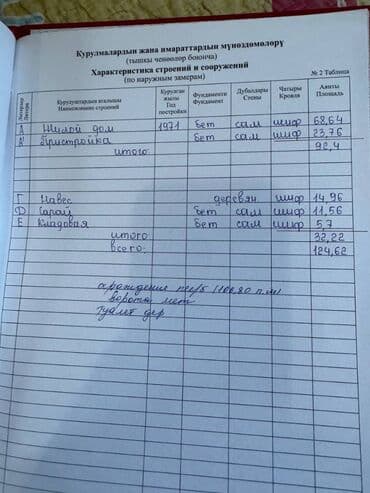 Курулмалардын жана имараттардын мүнөздөмөлөрү
(тышкы ченөөлөр боюнча)
Характеристика строений и сооружений
(по наружным замерам)
№ 2 Таблица
Литерлер Литера
Курулуштардын аталышы Наименование строений
Курулган жылы Год постройки
Фундаменти Фундамент
Дубалдары Стены
Чатыры Кровля
Аянты Площадь
А Жилой дом 1971 бет сам шиф 68,64
Пристройка бет сам шиф 23,76
итого: 92,4
Г Навес деревян шиф 14,96
Д Сарай бет сам шиф 11,56
Е Кладовая бет сам шиф 5,7
итого: 32,22
всего: 124,62
ворота мет
туалет дер